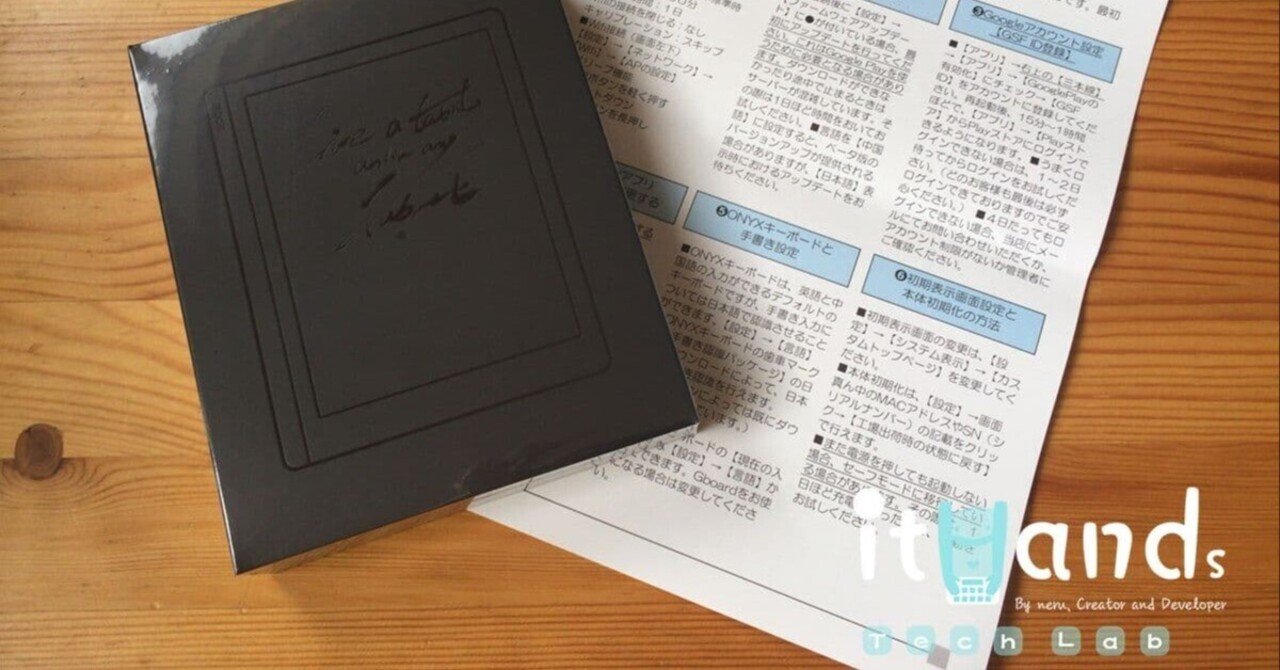 の接続時間：1日
の接続を閉じる：なし
キャリブレーション：スキップ
■Wifi接続（画面左下）
【設定】→【ネットワーク】→
【WiFi】→【APの設定】
リープ機能
ボタンを軽く押す
トダウン
ンを長押し
【ファームウェアアップデー
ト】に●が付いている場合、最
初にアップデートを行ってくだ
さい。これはGoogle Playを使
うために必要となる場合があり
ます。ダウンロードができな
かったり途中で止まるときは
サーバーが混雑しています。そ
の際は1日ほど時間をおいてお
試しください。■言語を【中国
語】に設定すると、ベータ版の
バージョンアップが提供される
場合がありますが、【日本語】表
示時におけるアップデートをお
待ちください。
です。最初
❸Googleアカウント設定
【GSF ID登録】
■【アプリ】→右上の【三本線】
→【アプリ】→【GooglePlayの
有効化】にチェック→【GSF
ID】をアカウントに登録してくだ
さい。再起動後、15分～1時間
ほどで、【アプリ】→【Playスト
ア】からPlayストアにログインで
きるようになります。■うまくロ
グインできない場合は、1～2日
待ってからログインをお試しくだ
さい。（どのお客様も最後は必ず
ログインできておりますのでご安
心ください。）■4日たってもロ
グインできない場合、当店にメー
ルにてお問い合わせいただくか、
アカウント制限がないか管理者に
ご確認ください。
アプリ
❺ONYXキーボードと
手書き設定
■ONYXキーボードは、英語と中
国語の入力ができるデフォルトの
キーボードですが、手書き入力に
ついては日本語で認識させること
ができます。【設定】→【言語】
ONYXキーボードの歯車マーク
手書き認識パッケージ】の日
ダウンロードによって、日本
き認識を行えます。
によっては既にダウ
ています。）
ボードの【現在の入
できます。Gboardをお使
になる場合は変更してくださ
い。
❻初期表示画面設定と
本体初期化の方法
■初期表示画面の変更は、【設
定】→【システム表示】→【カス
タムトップページ】を変更してく
ださい。
■本体初期化は、【設定】→画面
真ん中のMACアドレスやSN（シ
リアルナンバー）の記載をクリッ
ク→【工場出荷時の状態に戻す】
で行えます。
■また電源を押しても起動しない
場合、セーフモードに移行してい
る場合があります。その際
日ほど充電
お試しください
itHands
By neru, Creator and Developer
Tech Lab